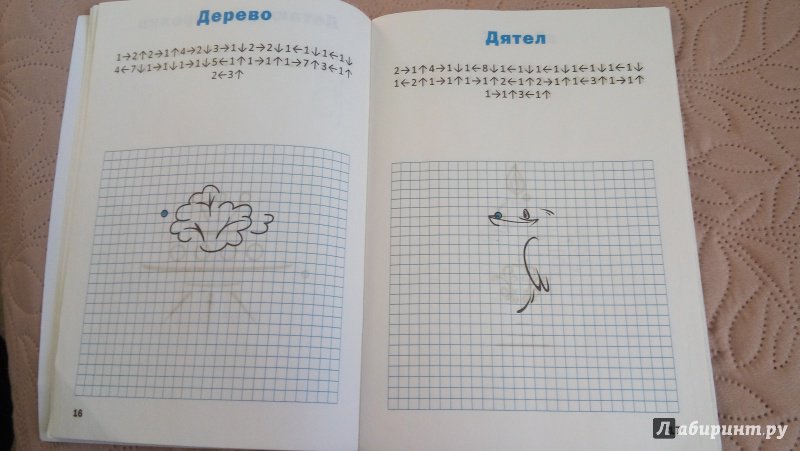 Дерево
1→2↑2→1↑4→2↓3→1↓2→2↓1←1↓1←1↓
4←7↓1→1↓1→1↓5←1↑1→1↑1→7↑3←1↑
2←3↑
16
Дятел
2→1↑4→1↓1←8↓1←1↓1←1↓1←1↓1←1↓
1←2↑1→1↑1→1↑2←1↑2→1↑1←3↑1→1↑
1→1↑3←1↑
Лабиринт.ру